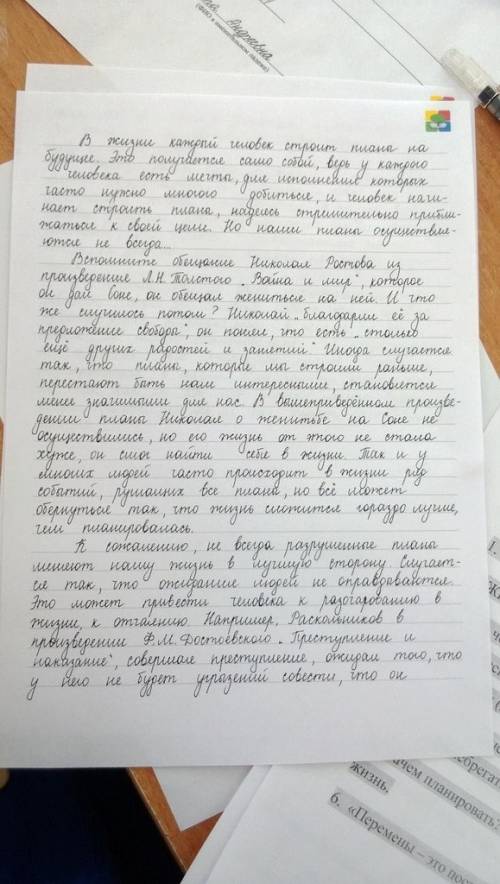 Андреевна
В жизни каждый человек строит планы на
будущее. Это получается само собой, ведь у каждого
человека есть мечты, для исполнения которых
часто нужно многого добиться, и человек начи-
нает строить планы, надеясь стремительно прибли-
жаться к своей цели. Но наши планы осуществля-
ются не всегда...
Вспомните обещание Николая Ростова из
произведения Л.Н. Толстого „Война и мир", которое
он дал Соне, он обещал жениться на ней. И что
же случилось потом? Николай „благодарил её за
предложение свободы", он понял, что есть „столько
ещё других радостей и занятий" Иногда случается
так, что планы, которые мы строим раньше,
перестают быть нам интересными, становятся
менее значимыми для нас. В вышеприведённом произве-
дении планы Николая о женитьбе на Соне не
осуществились, но его жизнь от этого не стала
хуже, он смог найти себя в жизни. Так и у
многих людей часто происходит в жизни ряд
событий, рушащих все планы, но всё может
обернуться так, что жизнь сложится гораздо лучше,
чем планировалась.
К сожалению, не всегда разрушенные планы
меняют нашу жизнь в лучшую сторону. Случает-
ся так, что ожидание людей не оправдываются.
Это может привести человека к разочарованию в
жизни, к отчаянию. Например, Раскольников в
произведении Ф.М. Достоевского „Преступление и
наказание", совершая преступление, ожидал того, что
у него не будет угрызений совести, что он
чем планировать?
жизнь.
6. «Перемены – это пос